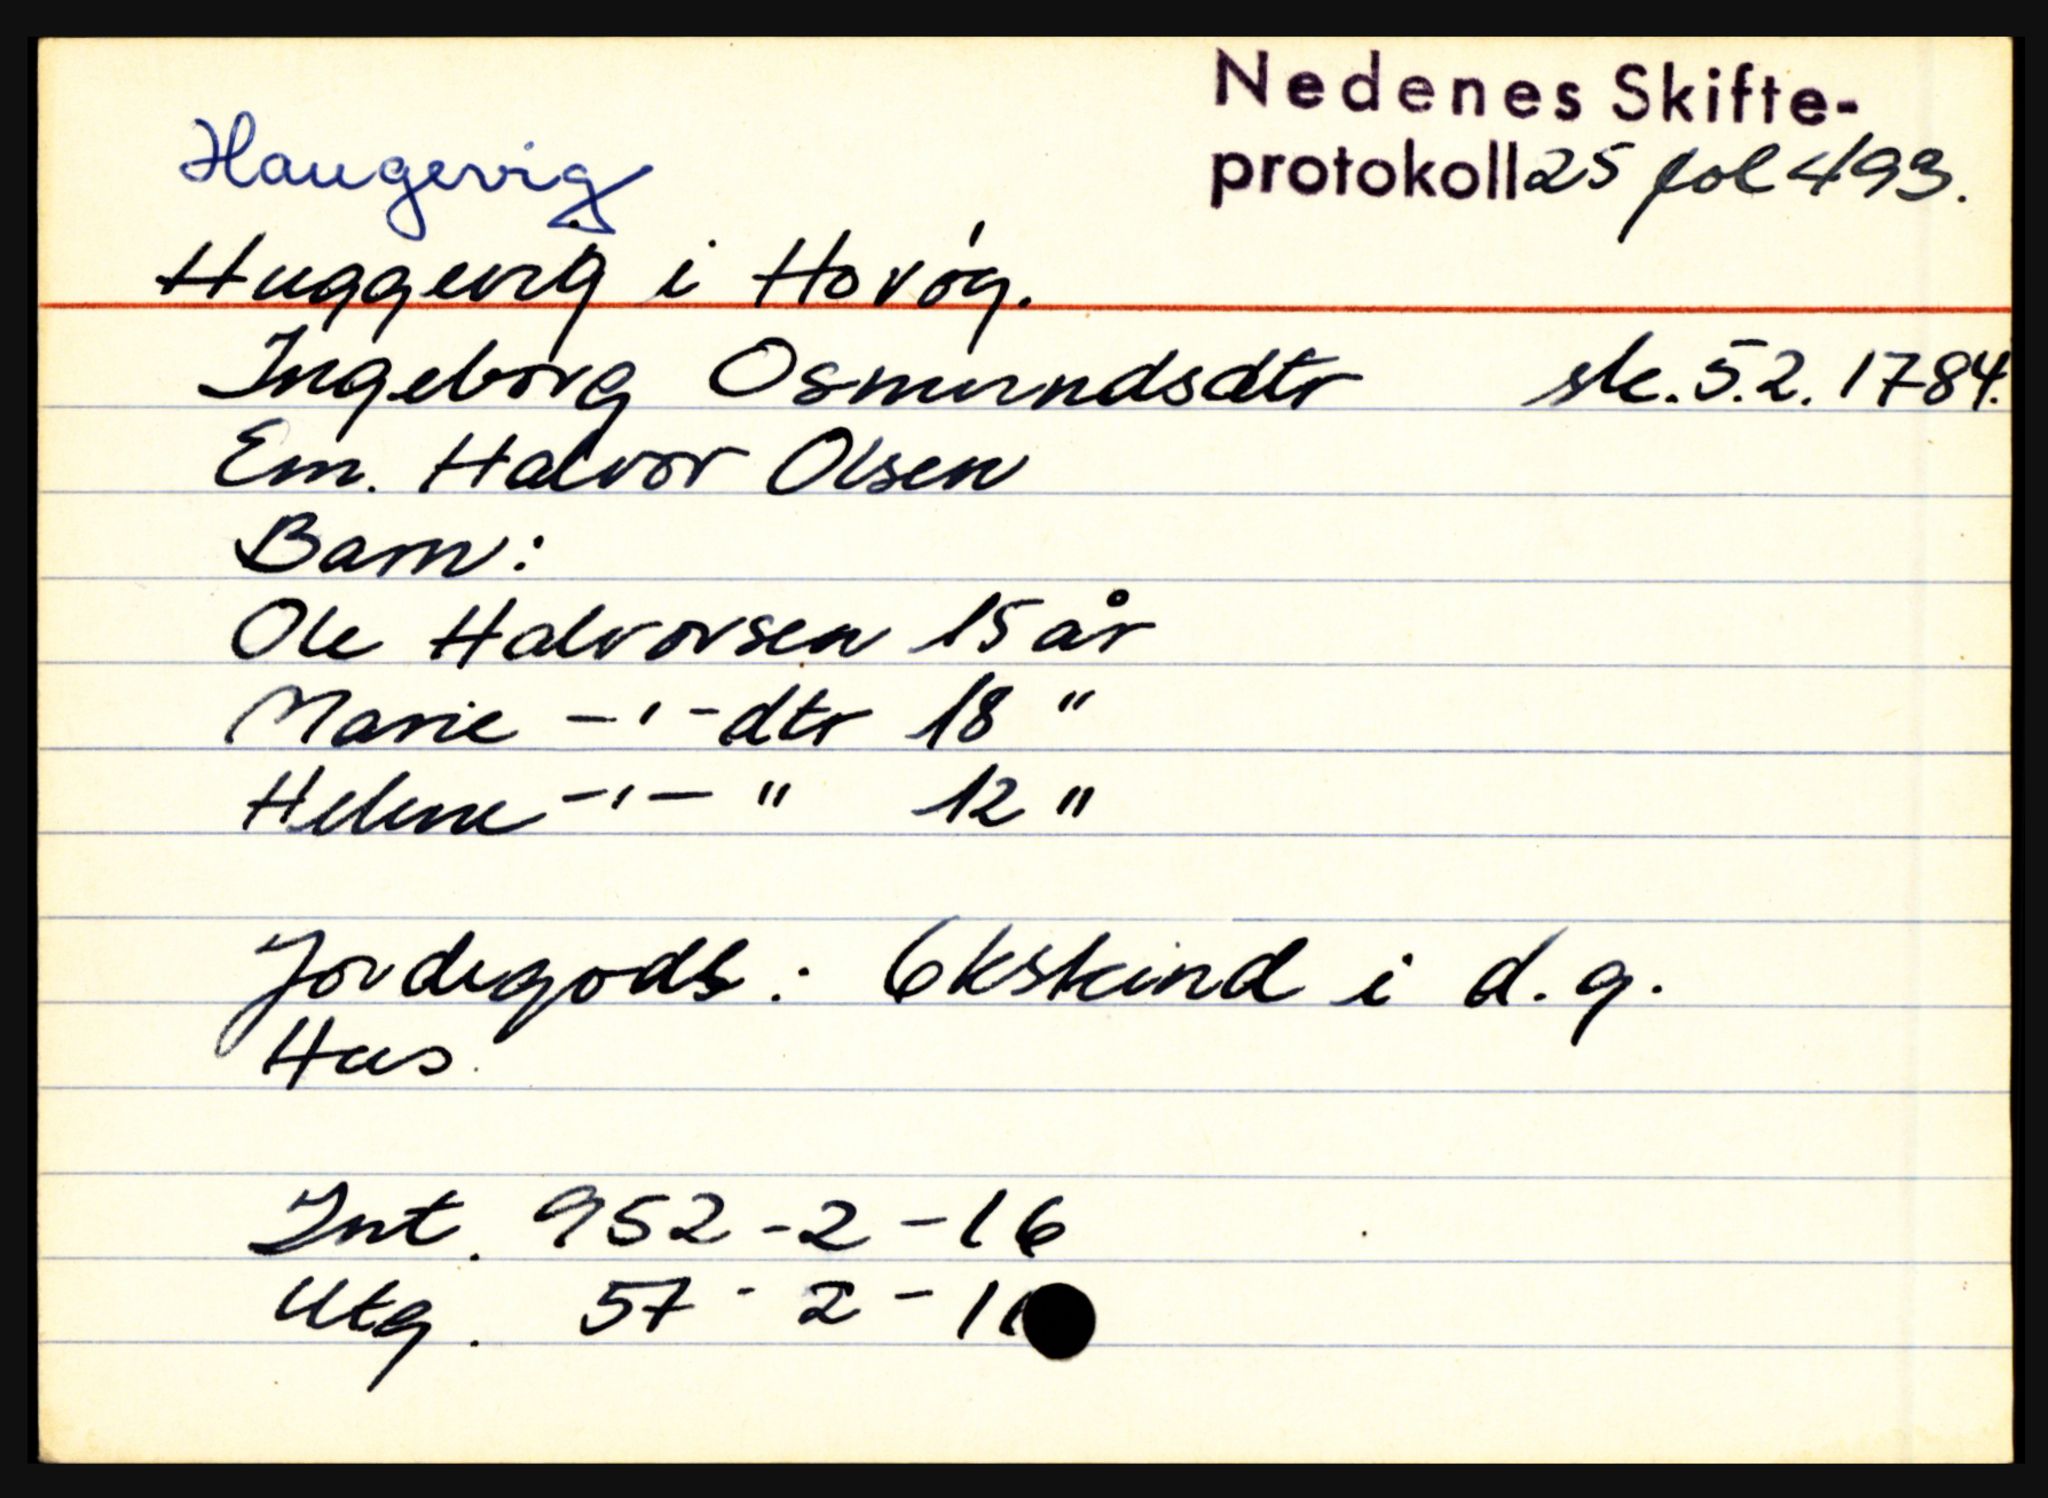 Nedenes Skifte-
protokoll 25 fol 493.
Haugevig
Huggevig i Hovåg.
Ingeborg Osmundsdtr sk. 5.2.1784.
Em. Halvor Olsen
Barn:
Ole Halvorsen 15 år
Marie -'-dtr 18 "
Helene -'- " 12 "
Jordegods: 6 kskind i d.g.
Hus.
Int. 952-2-16
Utg. 57-2-1